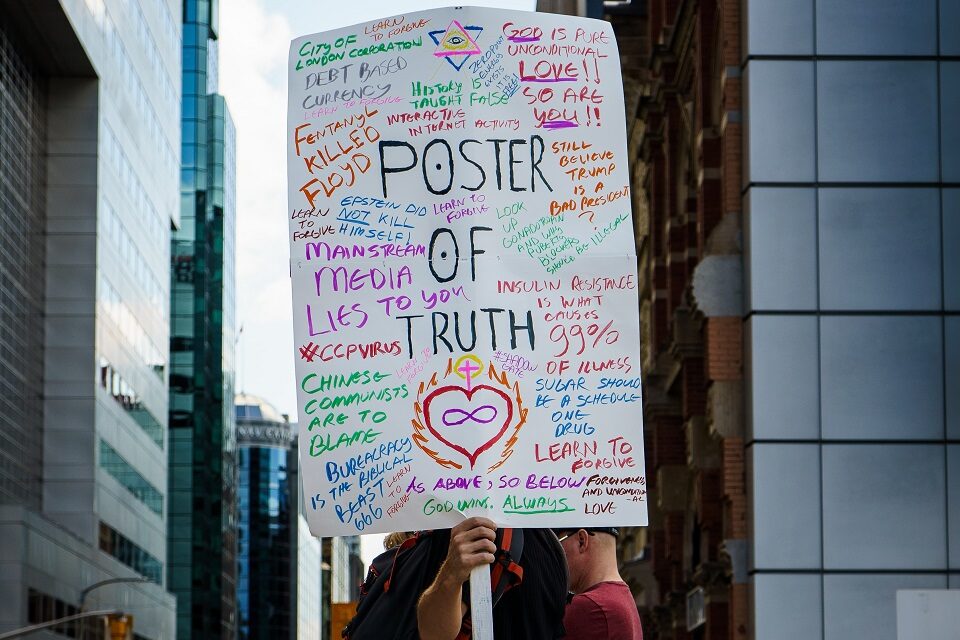 CITY OF
LONDON CORPORATION
LEARN TO
FORGIVE
DEBT BASED
CURRENCY
LEARN TO FORGIVE
HISTORY
TAUGHT
IS
FALSE
INTERACTIVE
INTERNET ACTIVITY
ZERO POINT
ENERGY
EXISTS
GOD IS PURE
UNCONDITIONAL
LOVE!!
SO ARE
YOU!!
FENTANYL
KILLED
FLOYD
POSTER
OF
TRUTH
STILL
BELIEVE
TRUMP
IS A
BAD PRESIDENT
?
LEARN
TO
FORGIVE
EPSTEIN DID
NOT KILL
HIMSELF!
LEARN TO
FORGIVE
LOOK
UP
AND WHY
PUBERTY
BLOCKERS
SHOULD BE ILLEGAL
MAINSTREAM
MEDIA
LIES TO YOU
INSULIN RESISTANCE
IS WHAT
CAUSES
99%
OF ILLNESS
#CCPVIRUS
LEARN TO
FORGIVE
#SHADOW
GATE
CHINESE
COMMUNISTS
ARE TO
BLAME
SUGAR SHOULD
BE A SCHEDULE
ONE
DRUG
BUREACRACY
IS THE BIBLICAL
BEAST
666
LEARN
TO
FORGIVE
LEARN TO
FORGIVE
AS ABOVE, SO BELOW
GOD WINS. ALWAYS
FORGIVENESS
AND UNCONDITIONAL
LOVE